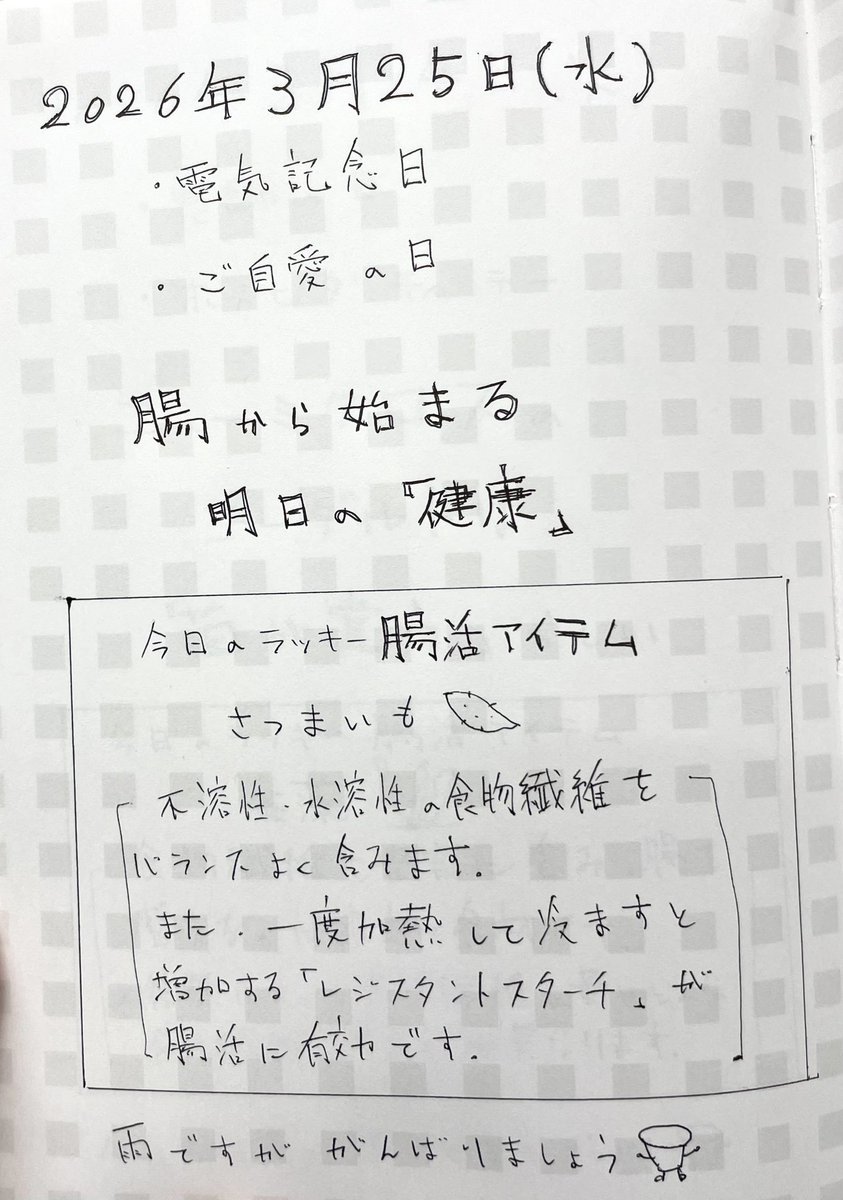 2026年3月25日(水)
・電気記念日
・ご自愛の日
腸から始まる
明日の「健康」
今日のラッキー腸活アイテム
さつまいも
不溶性・水溶性の食物繊維を
バランスよく含みます。
また、一度加熱して冷ますと
増加する「レジスタントスターチ」が
腸活に有効です。
雨ですが がんばりましょう